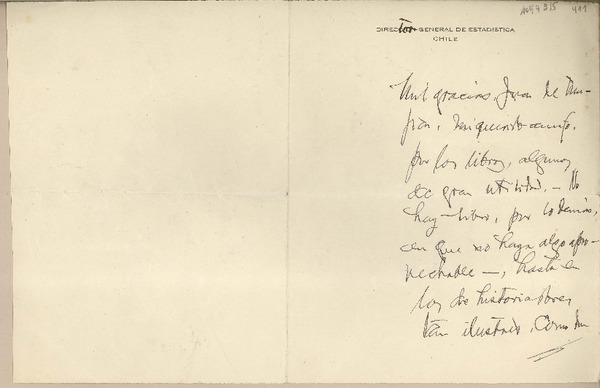 DIRECTOR GENERAL DE ESTADISTICA
CHILE
Mil gracias, Juan de
mi querido amigo,
por los libros, algunos
de gran utilidad. — No
hay libro, por lo demás,
en que no haya algo apro-
vechable —, hasta en
los de historiadores
tan ilustres, como